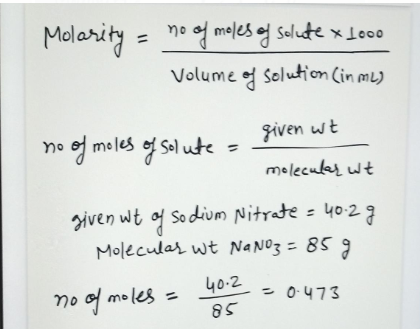 Molarity = no of moles of solute × 1000
Volume of solution (in mL)
no of moles of solute = given wt
molecular wt
given wt of Sodium Nitrate = 40.2 g
Molecular wt NaNO3 = 85 g
no of moles = 40.2 = 0.473
85